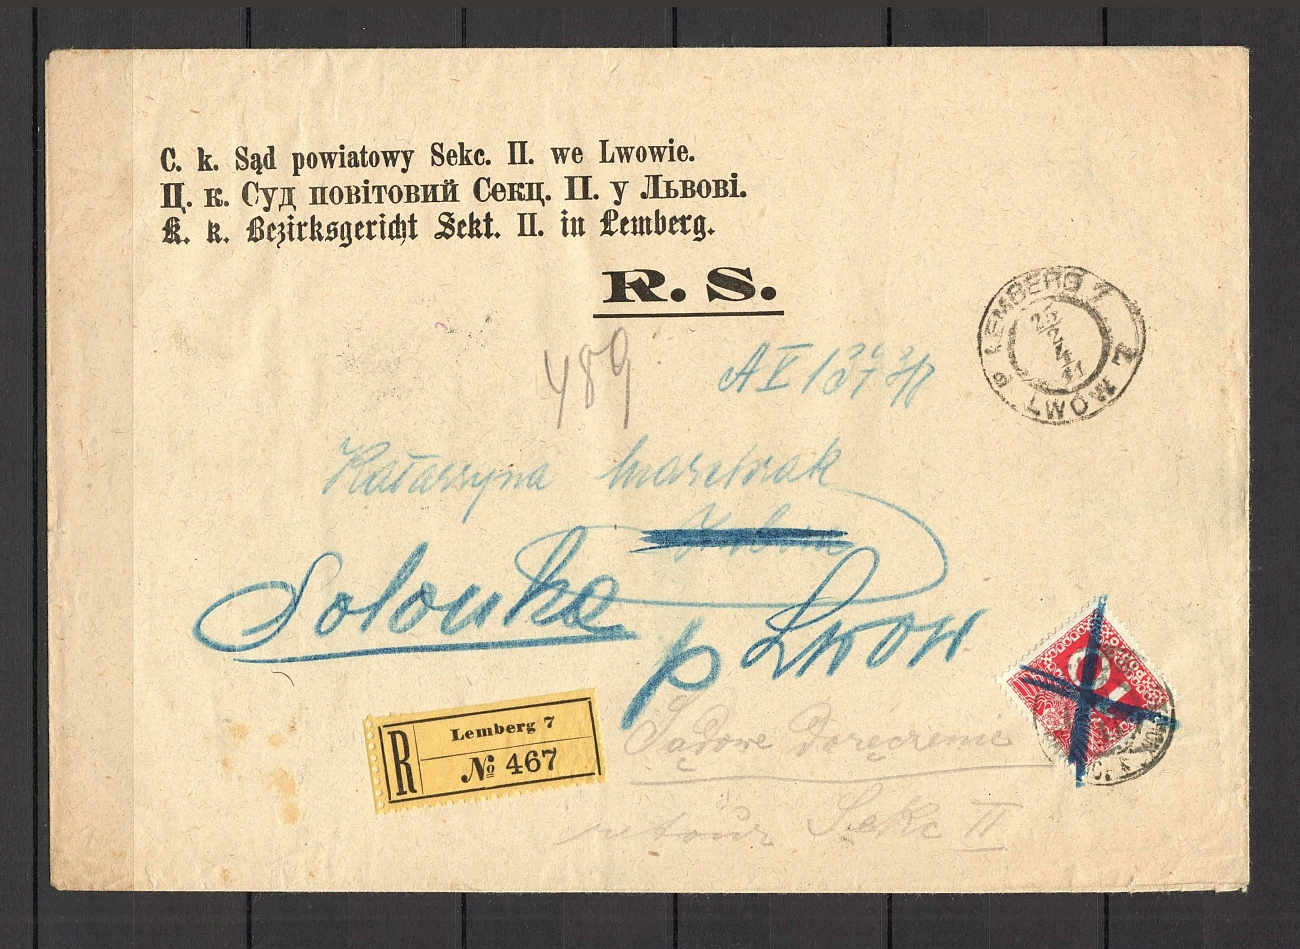 C. k. Sąd powiatowy Sekc. II. we Lwowie.
Ц. к. Суд повітовий Секц. II. у Львові.
K. k. Bezirksgericht Sekt. II. in Lemberg.
R. S.
LEMBERG 7
LWÓW 7
489
A V
Katarzyna
Solonka
p Lwow
R
Lemberg 7
№ 467
10
Sądowe doręczenie
retour Sekc II